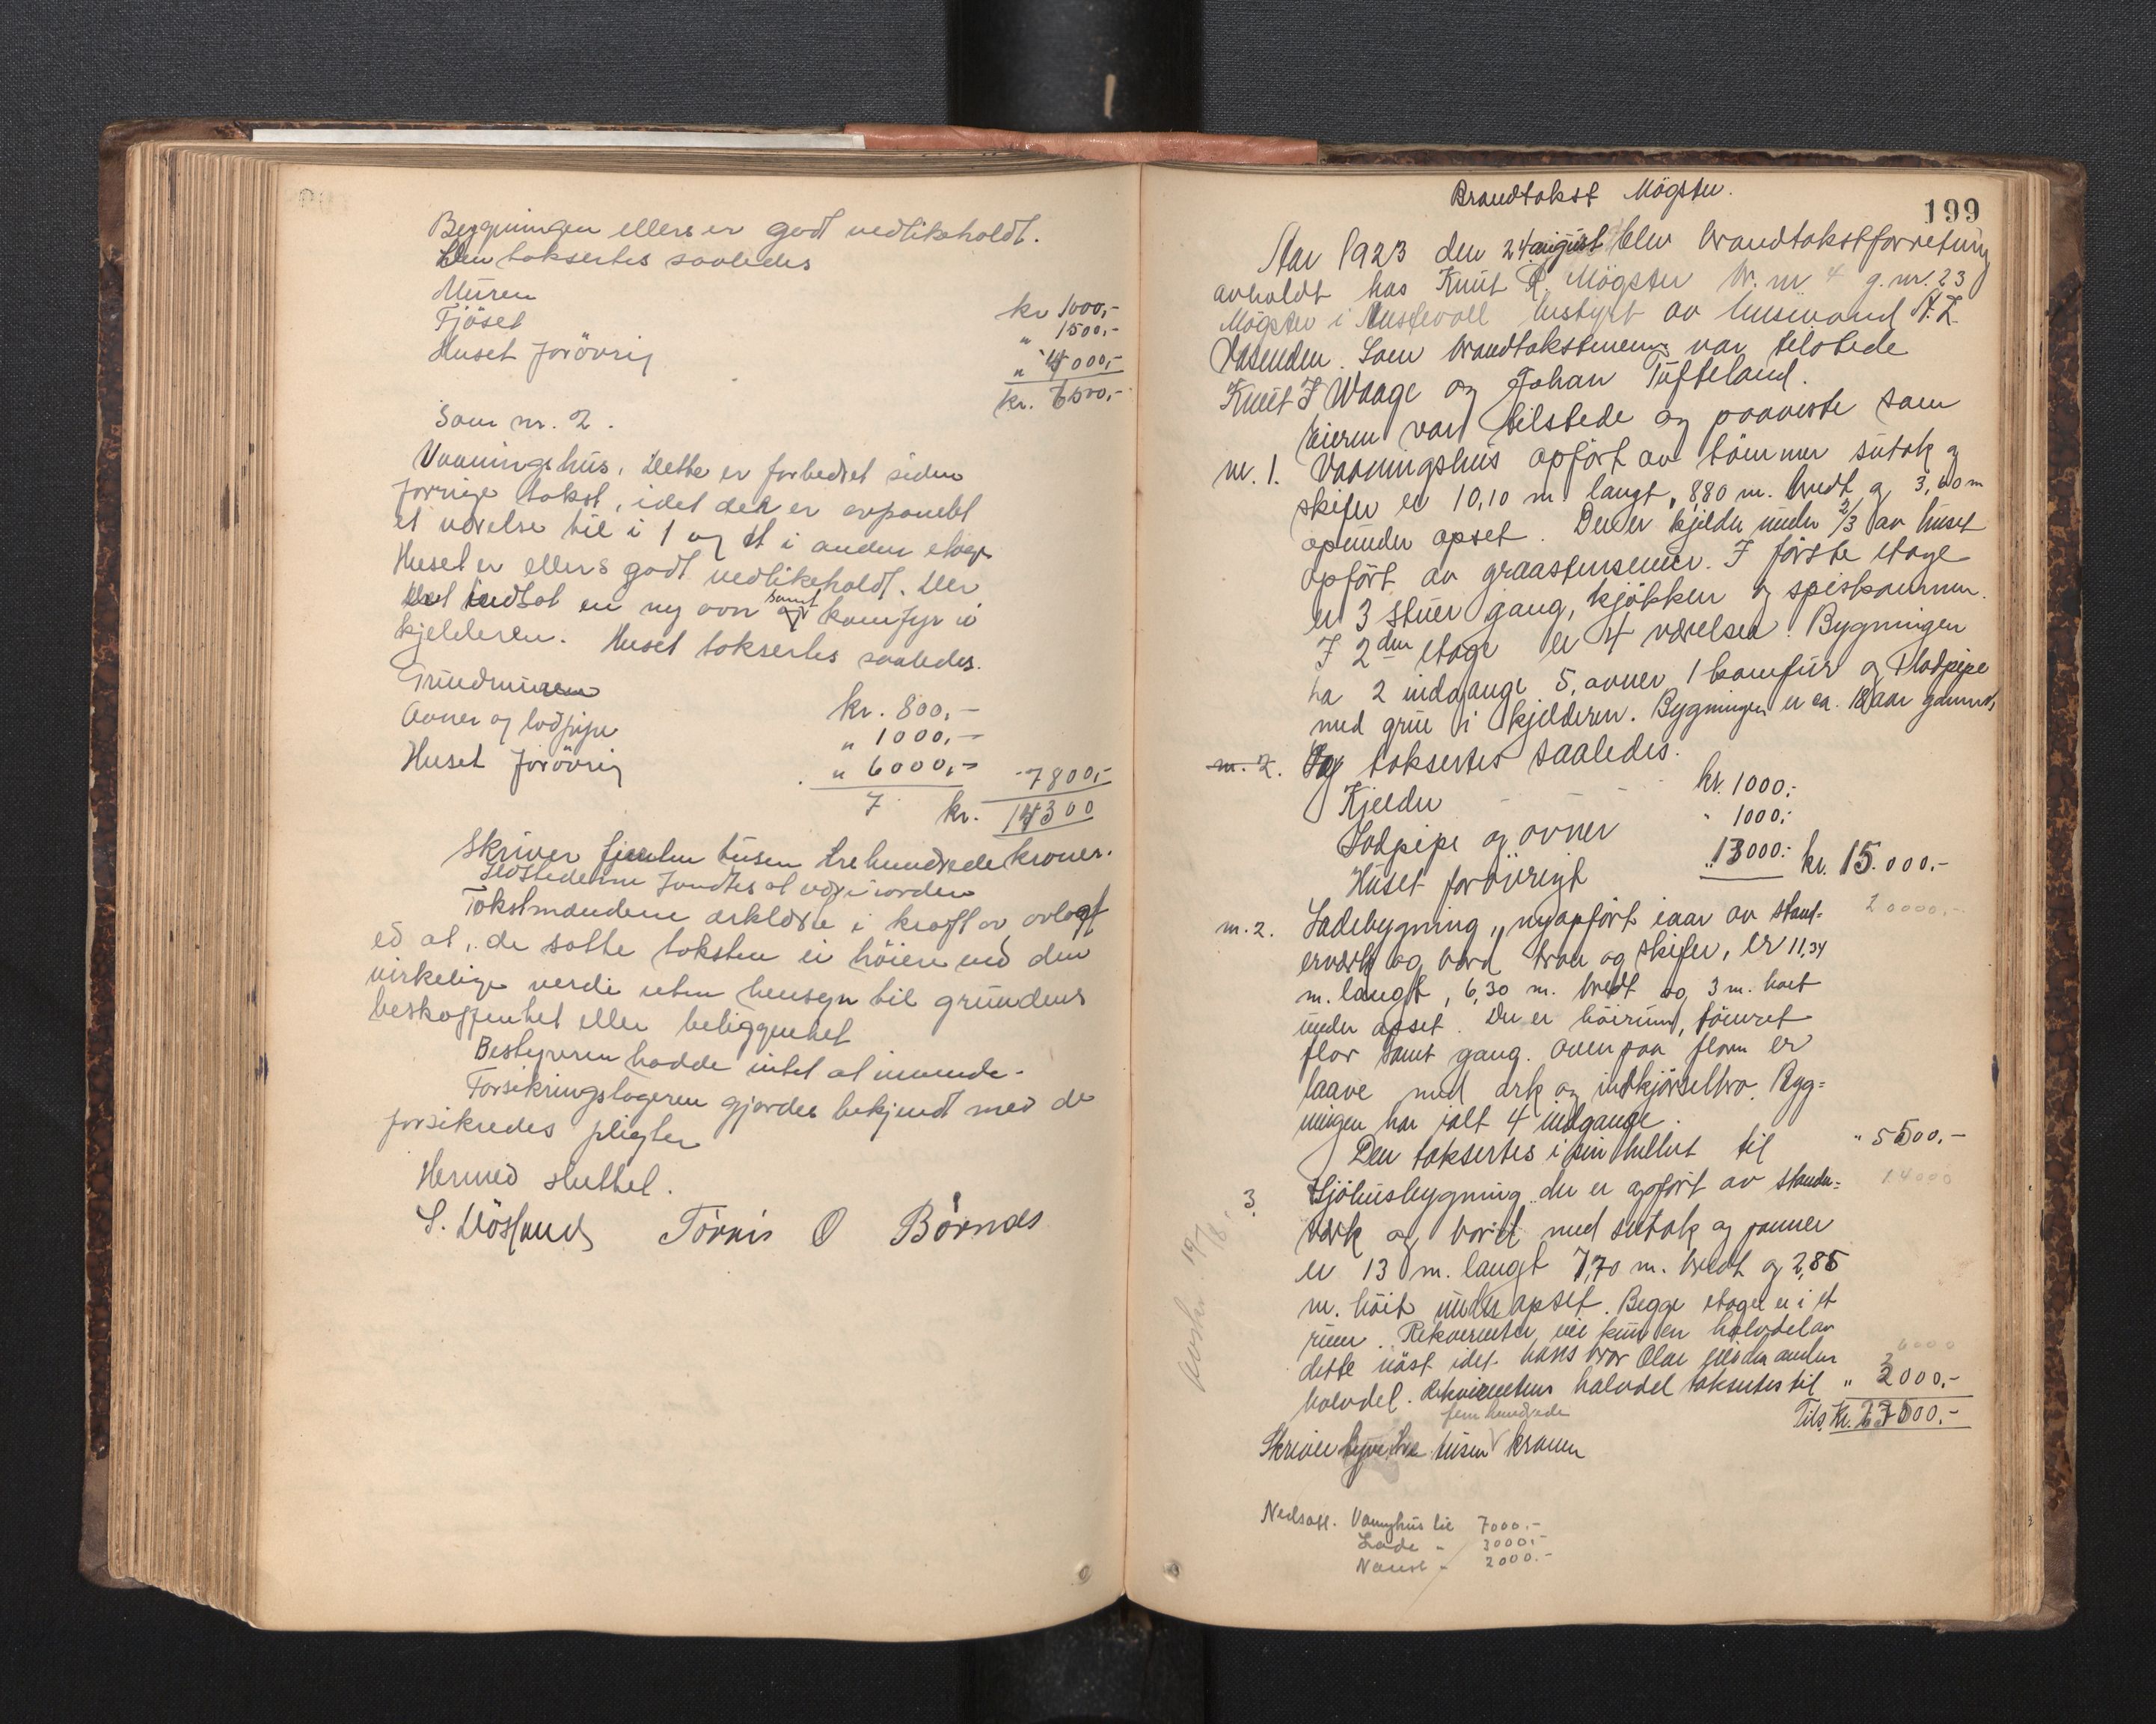 Bygningen ellers er godt vedlikeholdt.
Den taksertes saaledes
Muren kr 1000,-
Fjöset " 1500,-
Huset forövrig " 4000,-
kr. 6500,-
Som nr. 2.
Vaaningshus. Dette er forbedret siden
forrige takst, idet der er oppanelt
et værelse til i 1 og et i anden etage
Huset er ellers godt vedlikeholdt. Der
indsat en ny ovn samt komfyr i
kjelderen. Huset taksertes saaledes.
Grundmuren kr. 800,-
Ovner og lodpipe " 1000,-
Huset forövrig " 6000,- -7800,-
7 kr. 14300
Skriver fjorten tusen trehundrede kroner.
Ildstederne fandtes at være i orden
Takstmændene erklærte i kraft av avlagt
ed at, de satte taksten ei höiere end den
virkelige verdi uten hensyn til grundens
beskaffenhet eller beliggenhet
Bestyreren hadde intet at invende.
Forsikringstageren gjordes bekjendt med de
forsikredes pligter
Hermed sluttet.
S. Dösland Törris O Börnes
Brandtakst Mögster.
199
Aar 1923 den 24 august blev brandtakstforretning
avholdt hos Knut R. Mögster br. nr 4 g. nr. 23
Mögster i Austevoll bestyrt av lensmand A. Z.
Vasenden. Som brandtakstmenn var tilstede
Knut J Waage og Johan Tufteland.
Eieren var tilstede og paaviste som
nr. 1. Vaaningshus opfört av tömmer sutak og
skifer er 10,10 m langt, 8,80 m. bredt og 3,60 m
opunder opset. Der er kjelder under 2/3 av huset
opfört av graastensmur. I förste etage
er 3 stuer gang, kjökken og spiskammer.
I 2den etage er 4 værelser. Bygningen
ha 2 indgange 5 ovner 1 komfur og 1 lodpipe
med grue i kjelderen. Bygningen er ca. 18 aar gammel,
nr. 2. Og taksertes saaledes.
Kjelder kr. 1000,-
Lodpipe og ovner " 1000,-
Huset forövrigt " 13000,- kr. 15.000,-
20000,-
nr. 2. Ladebygning, nyopfört iaar av stand-
erverk og bord tron og skifer, er 11,34
m. langt, 6,30 m. bredt og 3 m. höit
under opset. Der er höirum, tömret
flor samt gang. Ovenpaa floren er
laave med ark og indkjörselbro. Byg-
ningen har ialt 4 indgange.
Den taksertes i sin helhet til " 5500,-
14000
3. Sjöhusbygning der er opfört av stander-
verk og bord med sutak og panner
er 13 m. langt 7,70 m. bredt og 2,85
m. höit under opset. Begge etager er i et
rum. Rekvirenten eier kun en halvdel av
dette nöst idet hans bror Olai eier den anden
6000
halvdel. Rekvirentens halvdel taksertes til " 3000,-
Tils. Kr. 23500,-
fem hundrede
Skriver tyve tre tusen kroner
Nedsatt. Vaanghus til 7000.-
Lade - 3000.-
Naust - 2000.-